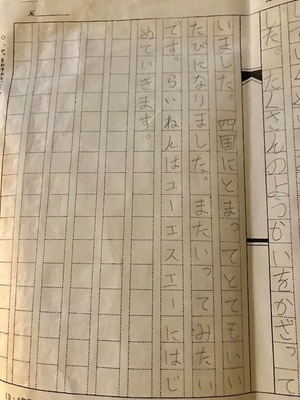 した。たくさんのようかいをかざって
いました。　四国にとまってとてもいい
たびになりました。またいってみたい
です。らいねんはユーエスエーにはじ
めていきます。
№